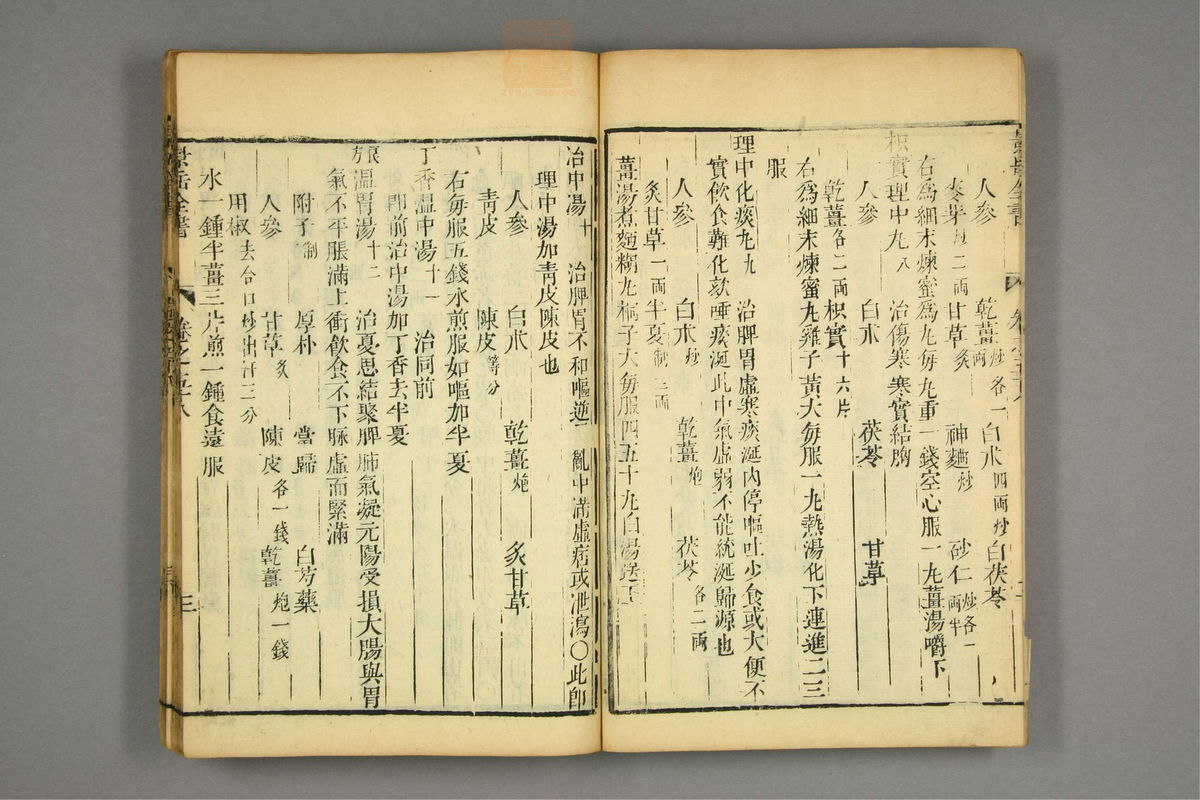 人參 乾薑炒各一兩 白朮四兩炒 白茯苓
麥芽各二兩 甘草炙 神麯炒 砂仁炒各一兩半
右爲細末煉蜜爲丸每丸重一錢空心服一丸薑湯嚼下
枳實理中丸八 治傷寒寒實結胸
人參 白朮 茯苓 甘草
乾薑各二兩 枳實十六片
右爲細末煉蜜丸雞子黃大每服一丸熱湯化下連進二三
服
理中化痰丸九 治脾胃虛寒痰涎內停嘔吐少食或大便不
實飲食難化欬唾痰涎此中氣虛弱不能統涎歸源也
人參 白朮炒 乾薑炮 茯苓各二兩
炙甘草一兩 半夏製三兩
薑湯煮麵糊丸桐子大每服四五十丸白湯送下
治中湯十 治脾胃不和嘔逆霍亂中滿虛痞或泄瀉〇此卽
理中湯加靑皮陳皮也
人參 白朮 乾薑炮 炙甘草
靑皮 陳皮等分
右每服五錢水煎服如嘔加半夏
丁香溫中湯十一 治同前
卽前治中湯加丁香去半夏
溫胃湯十二 治憂思結聚脾肺氣凝元陽受損大腸與胃
氣不平脹滿上衝飲食不下脉虛而緊滿
附子制 厚朴 當歸 白芍藥
人參 甘草炙 陳皮各一錢 乾薑炮一錢
用椒去合口炒出汗三分
水一鍾半薑三片煎一鍾食遠服
景岳全書 卷之五十八 三